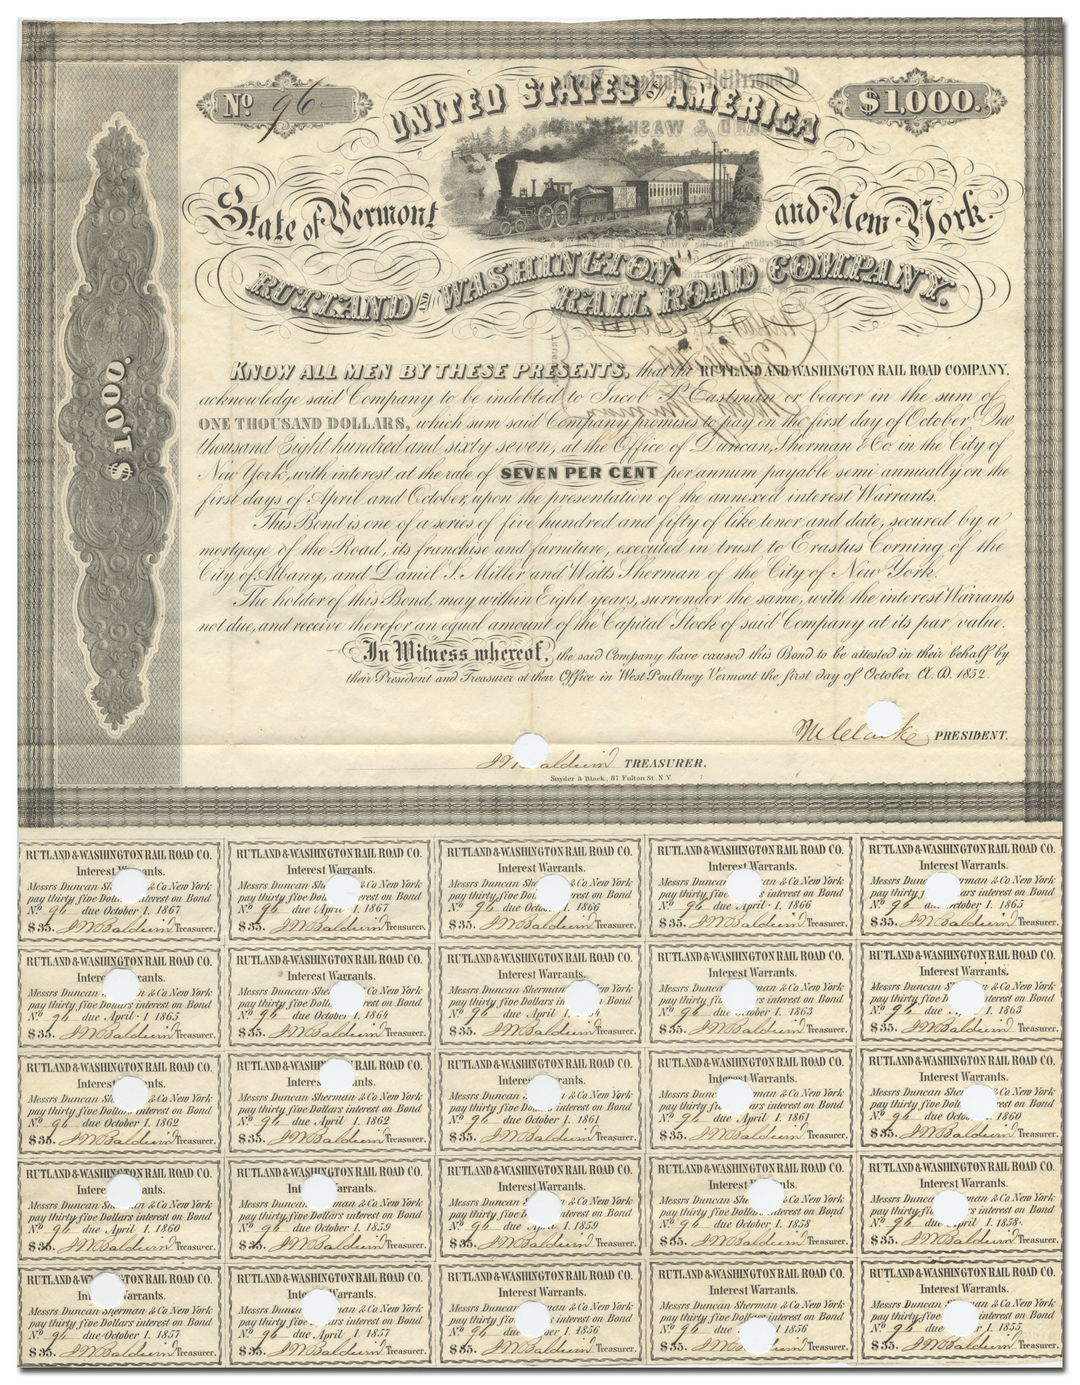 No 96
UNITED STATES OF AMERICA
$1,000.
State of Vermont and New York.
RUTLAND AND WASHINGTON RAIL ROAD COMPANY.
$1,000.
KNOW ALL MEN BY THESE PRESENTS, that the RUTLAND AND WASHINGTON RAIL ROAD COMPANY.
acknowledge said Company to be indebted to Jacob P. Eastman or bearer in the sum of
ONE THOUSAND DOLLARS, which sum said Company promises to pay on the first day of October One
thousand Eight hundred and sixty seven, at the Office of Duncan, Sherman & Co. in the City of
New York, with interest at the rate of SEVEN PER CENT per annum payable semi annually, on the
first days of April and October, upon the presentation of the annexed interest Warrants.
This Bond is one of a series of five hundred and fifty of like tenor and date, secured by a
mortgage of the Road, its franchise and furniture, executed in trust to Erastus Corning of the
City of Albany, and Daniel S. Miller and Watts Sherman of the City of New York.
The holder of this Bond, may within Eight years, surrender the same, with the interest Warrants
not due, and receive therefor an equal amount of the Capital Stock of said Company at its par value.
In Witness whereof, the said Company have caused this Bond to be attested in their behalf by
their President and Treasurer at their Office in West Poultney Vermont the first day of October A.D. 1852.
M Clarke PRESIDENT.
J W Baldwin TREASURER.
Snyder & Black, 87 Fulton St. N.Y.
RUTLAND & WASHINGTON RAIL ROAD CO.
Interest Warrants.
Messrs Duncan Sherman & Co New York
pay thirty five Dollars
No 96 due October 1. 1867
$35. J W Baldwin Treasurer.
RUTLAND & WASHINGTON RAIL ROAD CO.
Interest Warrants.
Messrs Duncan Sherman & Co New York
pay thirty five Dollars interest on Bond
No 96 due April 1. 1867
$35. J W Baldwin Treasurer.
RUTLAND & WASHINGTON RAIL ROAD CO.
Interest Warrants.
Messrs Duncan Sherman & Co New York
pay thirty five Dollars interest on Bond
No 96 due October 1. 1866
$35. J W Baldwin Treasurer.
RUTLAND & WASHINGTON RAIL ROAD CO.
Interest Warrants.
Messrs Duncan Sherman & Co New York
pay thirty five Dollars interest on Bond
No 96 due April 1. 1866
$35. J W Baldwin Treasurer.
RUTLAND & WASHINGTON RAIL ROAD CO.
Interest Warrants.
Messrs Duncan Sherman & Co New York
pay thirty five Dollars interest on Bond
No 96 due October 1. 1865
$35. J W Baldwin Treasurer.
RUTLAND & WASHINGTON RAIL ROAD CO.
Interest Warrants.
Messrs Duncan Sherman & Co New York
pay thirty five Dollars interest on Bond
No 96 due April 1 1865
$35. J W Baldwin Treasurer.
RUTLAND & WASHINGTON RAIL ROAD CO.
Interest Warrants.
Messrs Duncan Sherman & Co New York
pay thirty five Dollars interest on Bond
No 96 due October 1. 1864
$35. J W Baldwin Treasurer.
RUTLAND & WASHINGTON RAIL ROAD CO.
Interest Warrants.
Messrs Duncan Sherman & Co New York
pay thirty five Dollars interest on Bond
No 96 due
$35. J W Baldwin Treasurer.
RUTLAND & WASHINGTON RAIL ROAD CO.
Interest Warrants.
Messrs Duncan Sherman & Co New York
pay thirty five Dollars interest on Bond
No 96 due October 1. 1863
$35. J W Baldwin Treasurer.
RUTLAND & WASHINGTON RAIL ROAD CO.
Interest Warrants.
Messrs Duncan Sherman & Co New York
pay thirty five Dollars interest on Bond
No 96 due 1. 1863
$35. J W Baldwin Treasurer.
RUTLAND & WASHINGTON RAIL ROAD CO.
Interest Warrants.
Messrs Duncan Sherman & Co New York
pay thirty five Dollars interest on Bond
No 96 due October 1. 1862
$35. J W Baldwin Treasurer.
RUTLAND & WASHINGTON RAIL ROAD CO.
Interest Warrants.
Messrs Duncan Sherman & Co New York
pay thirty five Dollars interest on Bond
No 96 due April 1. 1862
$35. J W Baldwin Treasurer.
RUTLAND & WASHINGTON RAIL ROAD CO.
Interest Warrants.
Messrs Duncan Sherman & Co New York
pay thirty five Dollars interest on Bond
No 96 due October 1. 1861
$35. J W Baldwin Treasurer.
RUTLAND & WASHINGTON RAIL ROAD CO.
Interest Warrants.
Messrs Duncan Sherman & Co New York
pay thirty five Dollars interest on Bond
No 96 due April 1. 1861
$35. J W Baldwin Treasurer.
RUTLAND & WASHINGTON RAIL ROAD CO.
Interest Warrants.
Messrs Duncan Sherman & Co New York
pay thirty five Dollars interest on Bond
No 96 due October 1. 1860
$35. J W Baldwin Treasurer.
RUTLAND & WASHINGTON RAIL ROAD CO.
Interest Warrants.
Messrs Duncan Sherman & Co New York
pay thirty five Dollars interest on Bond
No 96 due April 1. 1860
$35. J W Baldwin Treasurer.
RUTLAND & WASHINGTON RAIL ROAD CO.
Interest Warrants.
Messrs Duncan Sherman & Co New York
pay thirty five Dollars interest on Bond
No 96 due October 1. 1859
$35. J W Baldwin Treasurer.
RUTLAND & WASHINGTON RAIL ROAD CO.
Interest Warrants.
Messrs Duncan Sherman & Co New York
pay thirty five Dollars interest on Bond
No 96 due April 1. 1859
$35. J W Baldwin Treasurer.
RUTLAND & WASHINGTON RAIL ROAD CO.
Interest Warrants.
Messrs Duncan Sherman & Co New York
pay thirty five Dollars interest on Bond
No 96 due October 1. 1858
$35. J W Baldwin Treasurer.
RUTLAND & WASHINGTON RAIL ROAD CO.
Interest Warrants.
Messrs Duncan Sherman & Co New York
pay thirty five Dollars interest on Bond
No 96 due April 1. 1858
$35. J W Baldwin Treasurer.
RUTLAND & WASHINGTON RAIL ROAD CO.
Interest Warrants.
Messrs Duncan Sherman & Co New York
pay thirty five Dollars interest on Bond
No 96 due October 1. 1857
$35. J W Baldwin Treasurer.
RUTLAND & WASHINGTON RAIL ROAD CO.
Interest Warrants.
Messrs Duncan Sherman & Co New York
pay thirty five Dollars interest on Bond
No 96 due April 1. 1857
$35. J W Baldwin Treasurer.
RUTLAND & WASHINGTON RAIL ROAD CO.
Interest Warrants.
Messrs Duncan Sherman & Co New York
pay thirty five Dollars interest on Bond
No 96 due October 1. 1856
$35. J W Baldwin Treasurer.
RUTLAND & WASHINGTON RAIL ROAD CO.
Interest Warrants.
Messrs Duncan Sherman & Co New York
pay thirty five Dollars interest on Bond
No 96 due 1 1856
$35. J W Baldwin Treasurer.
RUTLAND & WASHINGTON RAIL ROAD CO.
Interest Warrants.
Messrs Duncan Sherman & Co New York
pay thirty five Dollars interest on Bond
No 96 due 1. 1855
$35. J W Baldwin Treasurer.